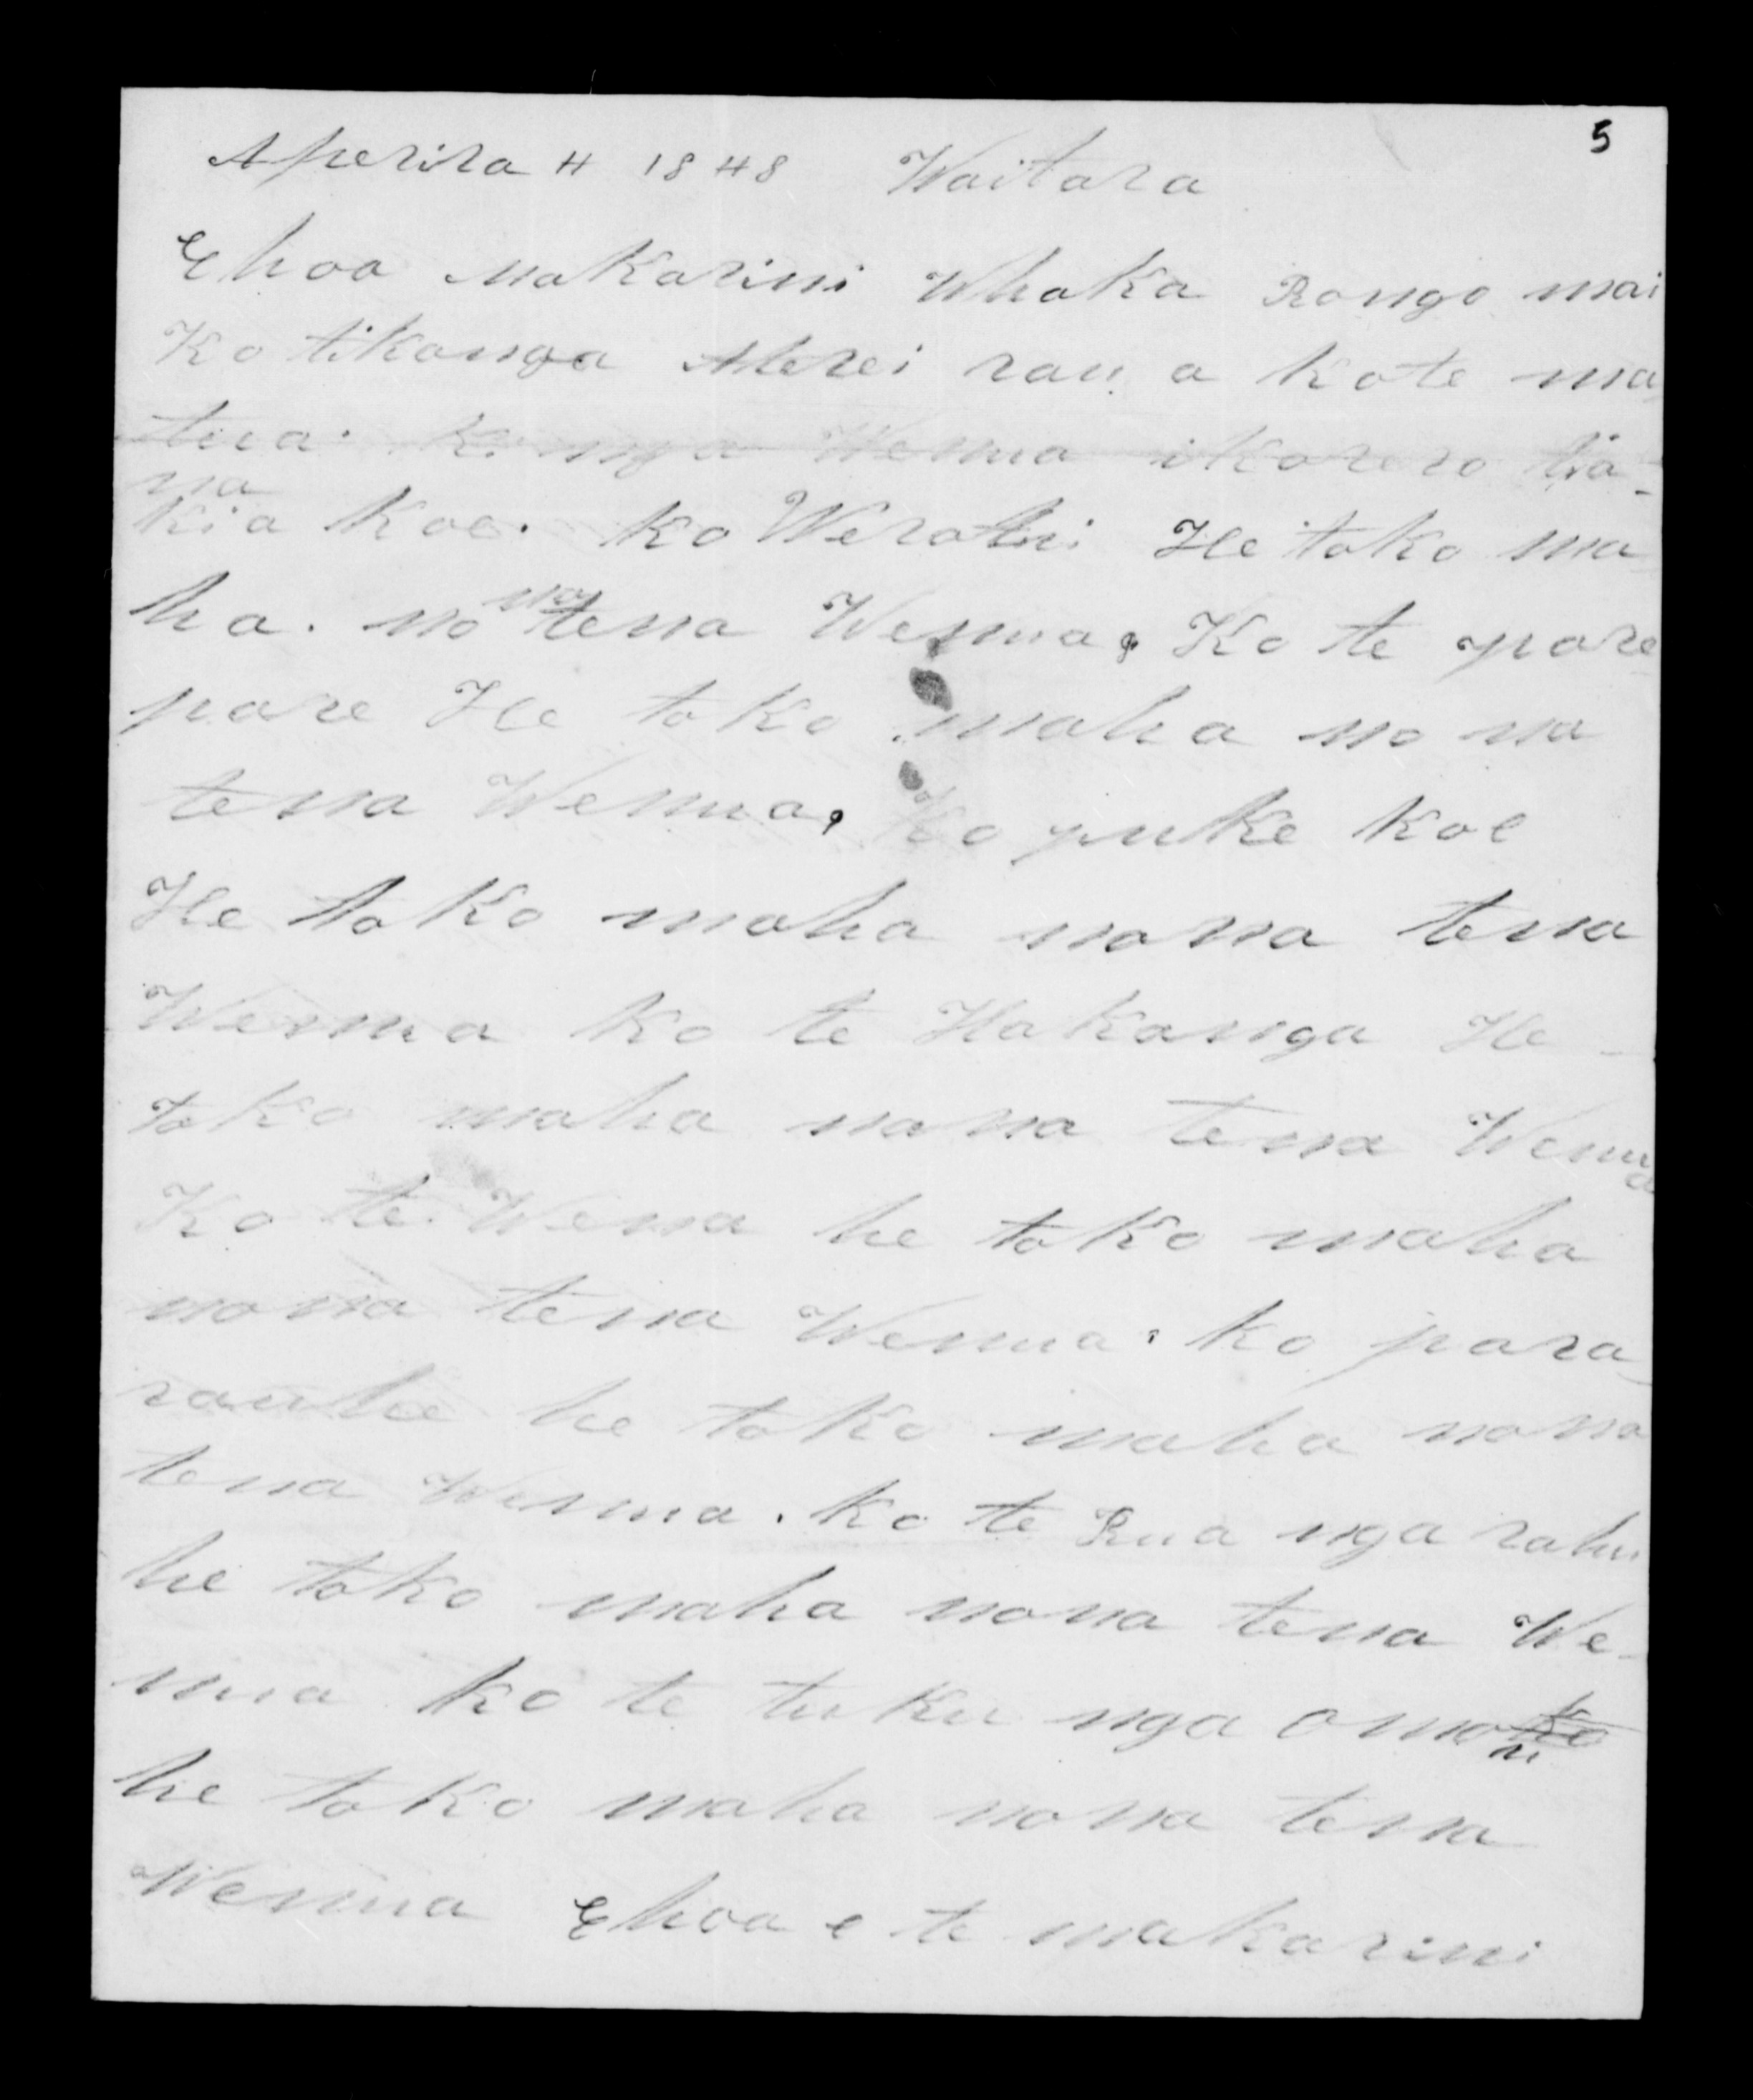 5
Aperira 4 1848 Waitara
Ehoa Makarini Whaka Rongo mai
Ko tikanga Merei rau a Kote ma
tua. Ko nga Wenua i Korero tia-
na
Kia Koe. Ko Weratu: He toko ma
ha. no na tena Wenua, Ko te pare
pare He toko maha no na
tena Wenua, Ko puke Koe
He toko maha nona tena
Wenua Ko te Hakanga He
toko maha nona tena Wenua
Ko te Wena he toko maha
nona tena Wenua. Ko para
rauhe he toko maha nona
tena Wenua. Ko te Rua nga rahu
he toko maha nona tena We-
nua Ko te tuku nga o
he toko maha nona tena
Wenua Ehoa e te makarini